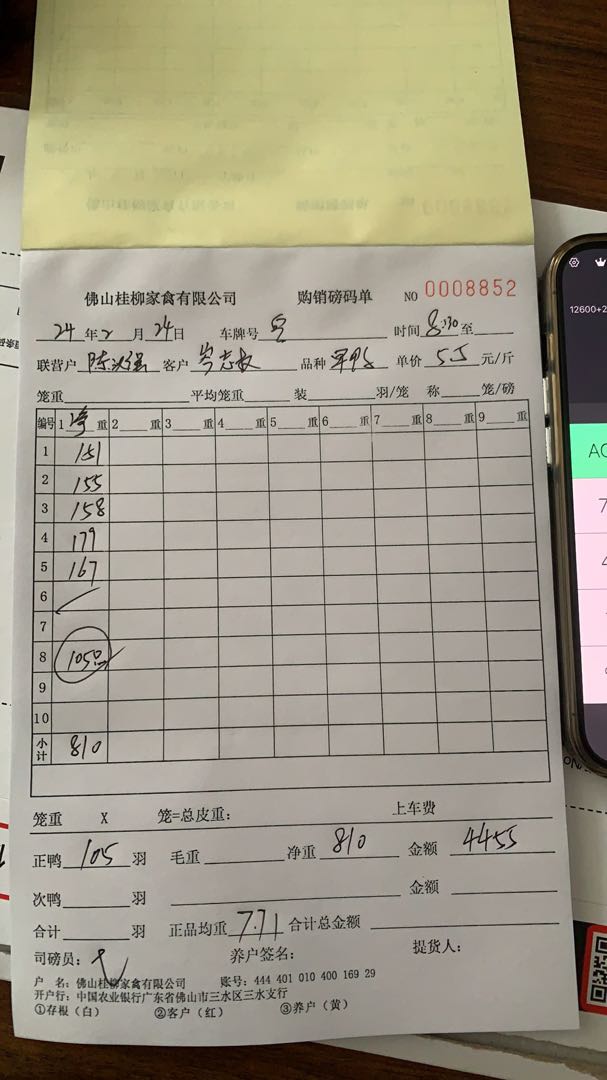 佛山桂柳家禽有限公司 购销磅码单 NO 0008852
24 年 2 月 24 日 车牌号 时间 8:30 至
联营户 陈 强 客户 岑志 品种 单价 5.5 元/斤
笼重 平均笼重 装 羽/笼 称 笼/磅
编号 1 净 重 2 重 3 重 4 重 5 重 6 重 7 重 8 重 9 重
1 151
2 155
3 158
4 179
5 167
6
7
8 105只
9
10
小计 810
笼重 X 笼=总皮重: 上车费
正鸭 105 羽 毛重 净重 810 金额 4455
次鸭 羽 金额
合计 羽 正品均重 7.71 合计总金额
司磅员: 养户签名: 提货人:
户 名: 佛山桂柳家禽有限公司 账号: 444 401 010 400 169 29
开户行: 中国农业银行广东省佛山市三水区三水支行
①存根（白） ②客户（红） ③养户（黄）
12600+2
AC
7
4